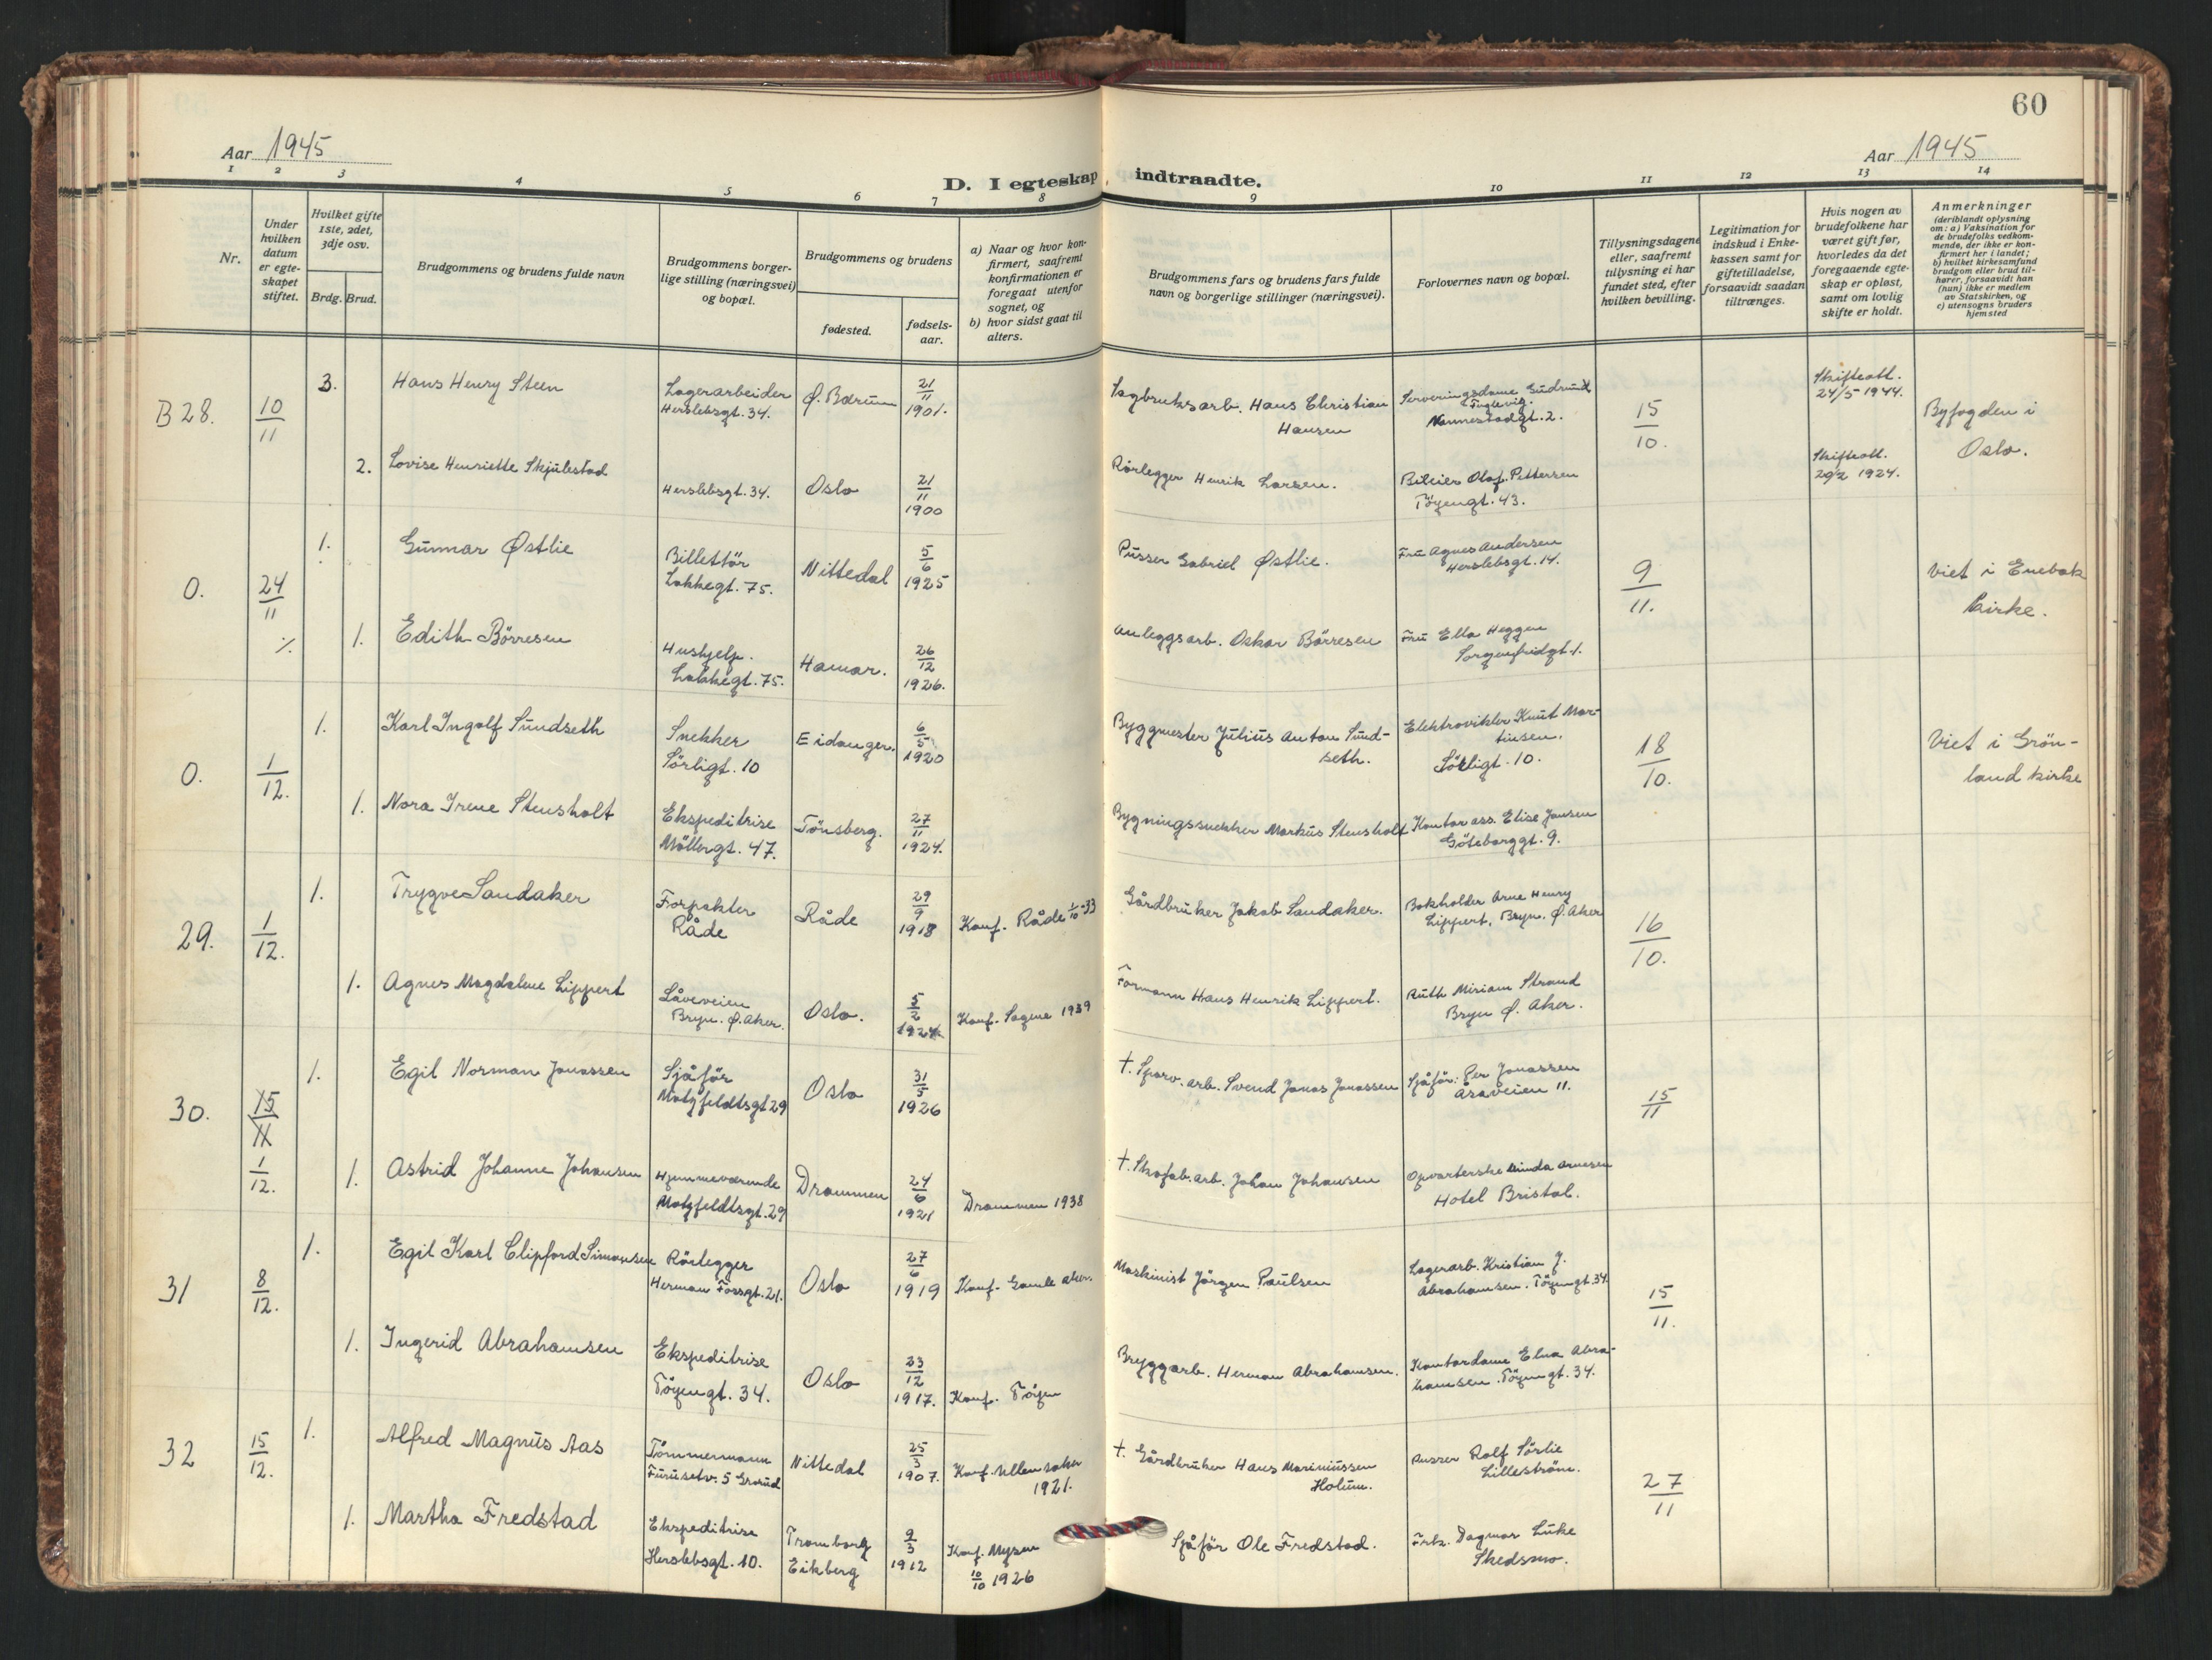 60
Aar 1945
Aar 1945
D. I egteskap indtraadte.
1 2 3 4 5 6 7 8 9 10 11 12 13 14
Nr.
Under hvilken datum er egteskapet stiftet.
Hvilket gifte 1ste, 2det, 3dje osv.
Brdg. Brud.
Brudgommens og brudens fulde navn
Brudgommens borgerlige stilling (næringsvei) og bopæl.
Brudgommens og brudens
fødested.
fødselsaar.
a) Naar og hvor konfirmert, saafremt konfirmationen er foregaat utenfor sognet, og
b) hvor sidst gaat til alters.
Brudgommens fars og brudens fars fulde navn og borgerlige stillinger (næringsvei).
Forlovernes navn og bopæl.
Tillysningsdagene eller, saafremt tillysning ei har fundet sted, efter hvilken bevilling.
Legitimation for indskud i Enkekassen samt for giftetilladelse, forsaavidt saadan tiltrænges.
Hvis nogen av brudefolkene har været gift før, hvorledes da det foregaaende egteskap er opløst, samt om lovlig skifte er holdt.
Anmerkninger
(deriblandt oplysning om: a) Vaksination for de brudefolks vedkommende, der ikke er konfirmert her i landet;
b) hvilket kirkesamfund brudgom eller brud tilhører, forsaavidt han (hun) ikke er medlem av Statskirken, og
c) utensogns bruders hjemsted
B 28. 10/11 3. Hans Henry Steen Lagerarbeider Herslebsgt. 34. Ø. Bærum 21/11 1901. Sagbruksarb. Hans Christian Hansen Serveringsdame Gudrun Fuglevig. Nannestadgt. 2. 15/10. Skifteatt. 24/5 1944. Byfogden i Oslo.
2. Lovise Henriette Skjulestad Herslebsgt. 34. Oslo 21/11 1900 Rörlegger Henrik Larsen. Bileier Olaf Pettersen Töyengt. 43. Skifteatt. 29/2 1924.
0. 24/11 1. Gunnar Østlie Billettör Lakkegt. 75. Nittedal 5/6 1925 Pusser Gabriel Østlie. Fru Agnes Andersen Herslebsgt. 14. 9/11. Viet i Enebak kirke.
1. Edith Börresen Hushjelp. Lakkegt. 75. Hamar. 26/12 1926. Anleggsarb. Oskar Börresen Fru Ella Heggen Sorgenfridgt. 1.
0. 1/12. 1. Karl Ingolf Sundseth Snekker Sörligt. 10 Eidanger. 6/5 1920 Byggmester Julius Anton Sundseth. Elektrovikler Knut Martinsen. Sörligt. 10. 18/10. Viet i Grönland kirke
1. Nora Irene Stensholt Ekspeditrise Möllergt. 47. Tönsberg. 27/11 1924. Bygningssnekker Markus Stensholt Kontorass. Elise Jansen Göteborggt. 9.
29. 1/12. 1. Trygve Sandaker Forpakter Råde Råde 29/9 1918 Konf. Råde 1/10-33 Gårdbruker Jakob Sandaker. Bokholder Arne Henry Lippert, Bryn, Ø. Aker 16/10.
1. Agnes Magdalene Lippert Låveveien Bryn. Ø. Aker. Oslo. 5/2 1924 Konf. Sagene 1939 Formann Hans Henrik Lippert. Ruth Miriam Strand Bryn Ø. Aker.
30. 15/11 1/12. 1. Egil Norman Jonassen Sjåför Motzfeldtsgt 29 Oslo 31/5 1926 †. Sporv. arb. Svend Jonas Jonassen Sjåför: Per Jonassen Åsaveien 11. 15/11
1. Astrid Johanne Johansen Hjemmeværende Motzfeldtsgt. 29 Drammen 24/6 1921 Drammen 1938 †. Skofab. arb. Johan Johansen Opvarterske Minda Arnesen Hotel Bristol.
31 8/12. 1. Egil Karl Clifford Simonsen Rörlegger Herman Fossgt. 21. Oslo 27/6 1919 Konf. Gamle Aker. Maskinist Jörgen Paulsen Lagerarb. Kristian J. Abrahamsen. Töyengt 34. 15/11.
1. Ingerid Abrahamsen Ekspeditrise Töyengt. 34. Oslo 23/12 1917. Konf. Töyen Bryggarb. Herman Abrahamsen. Kontordame Elna Abrahamsen. Töyengt. 34.
32 15/12. 1. Alfred Magnus Aas Tömmermann Furusetv. 5 Grorud Nittedal 25/3 1907. Konf. Ullensaker 1921. †. Gårdbruker Hans Mariniussen Holum. Pusser Rolf Sörlie Lilleström. 27/11
1. Martha Fredstad Ekspeditrise Herslebsgt. 10. Tromborg Eikberg 9/3 1912 Konf. Mysen 10/10 1926 Sjåför Ole Fredstad. Frk. Dagmar Luke Skedsmo.